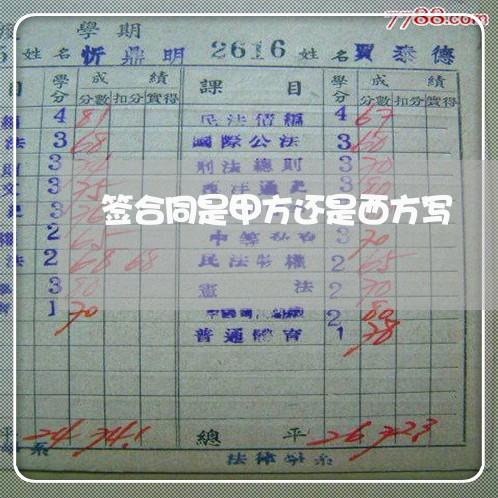 7788.com
學期
姓名 忻鼎明 2616 姓名 賈泰德
目 學分 成績 課目 學分 成績
分數 扣分 實得 分數 扣分 實得
4 81 民法債編 4 67
法 3 68 國際公法 3 60
3 刑法總則 3 70
3 75 西洋通史 3 80
签合同是甲方还是西方写
2 65 3 70
法 2 68 68 民法物權 2 65
3 80 憲法 2 70
1 70 2 80
普通體育 1 78
平 24 74.1 總平 26 72.3
系 法律學系